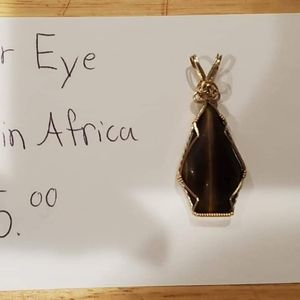 r Eye
in Africa
5.00